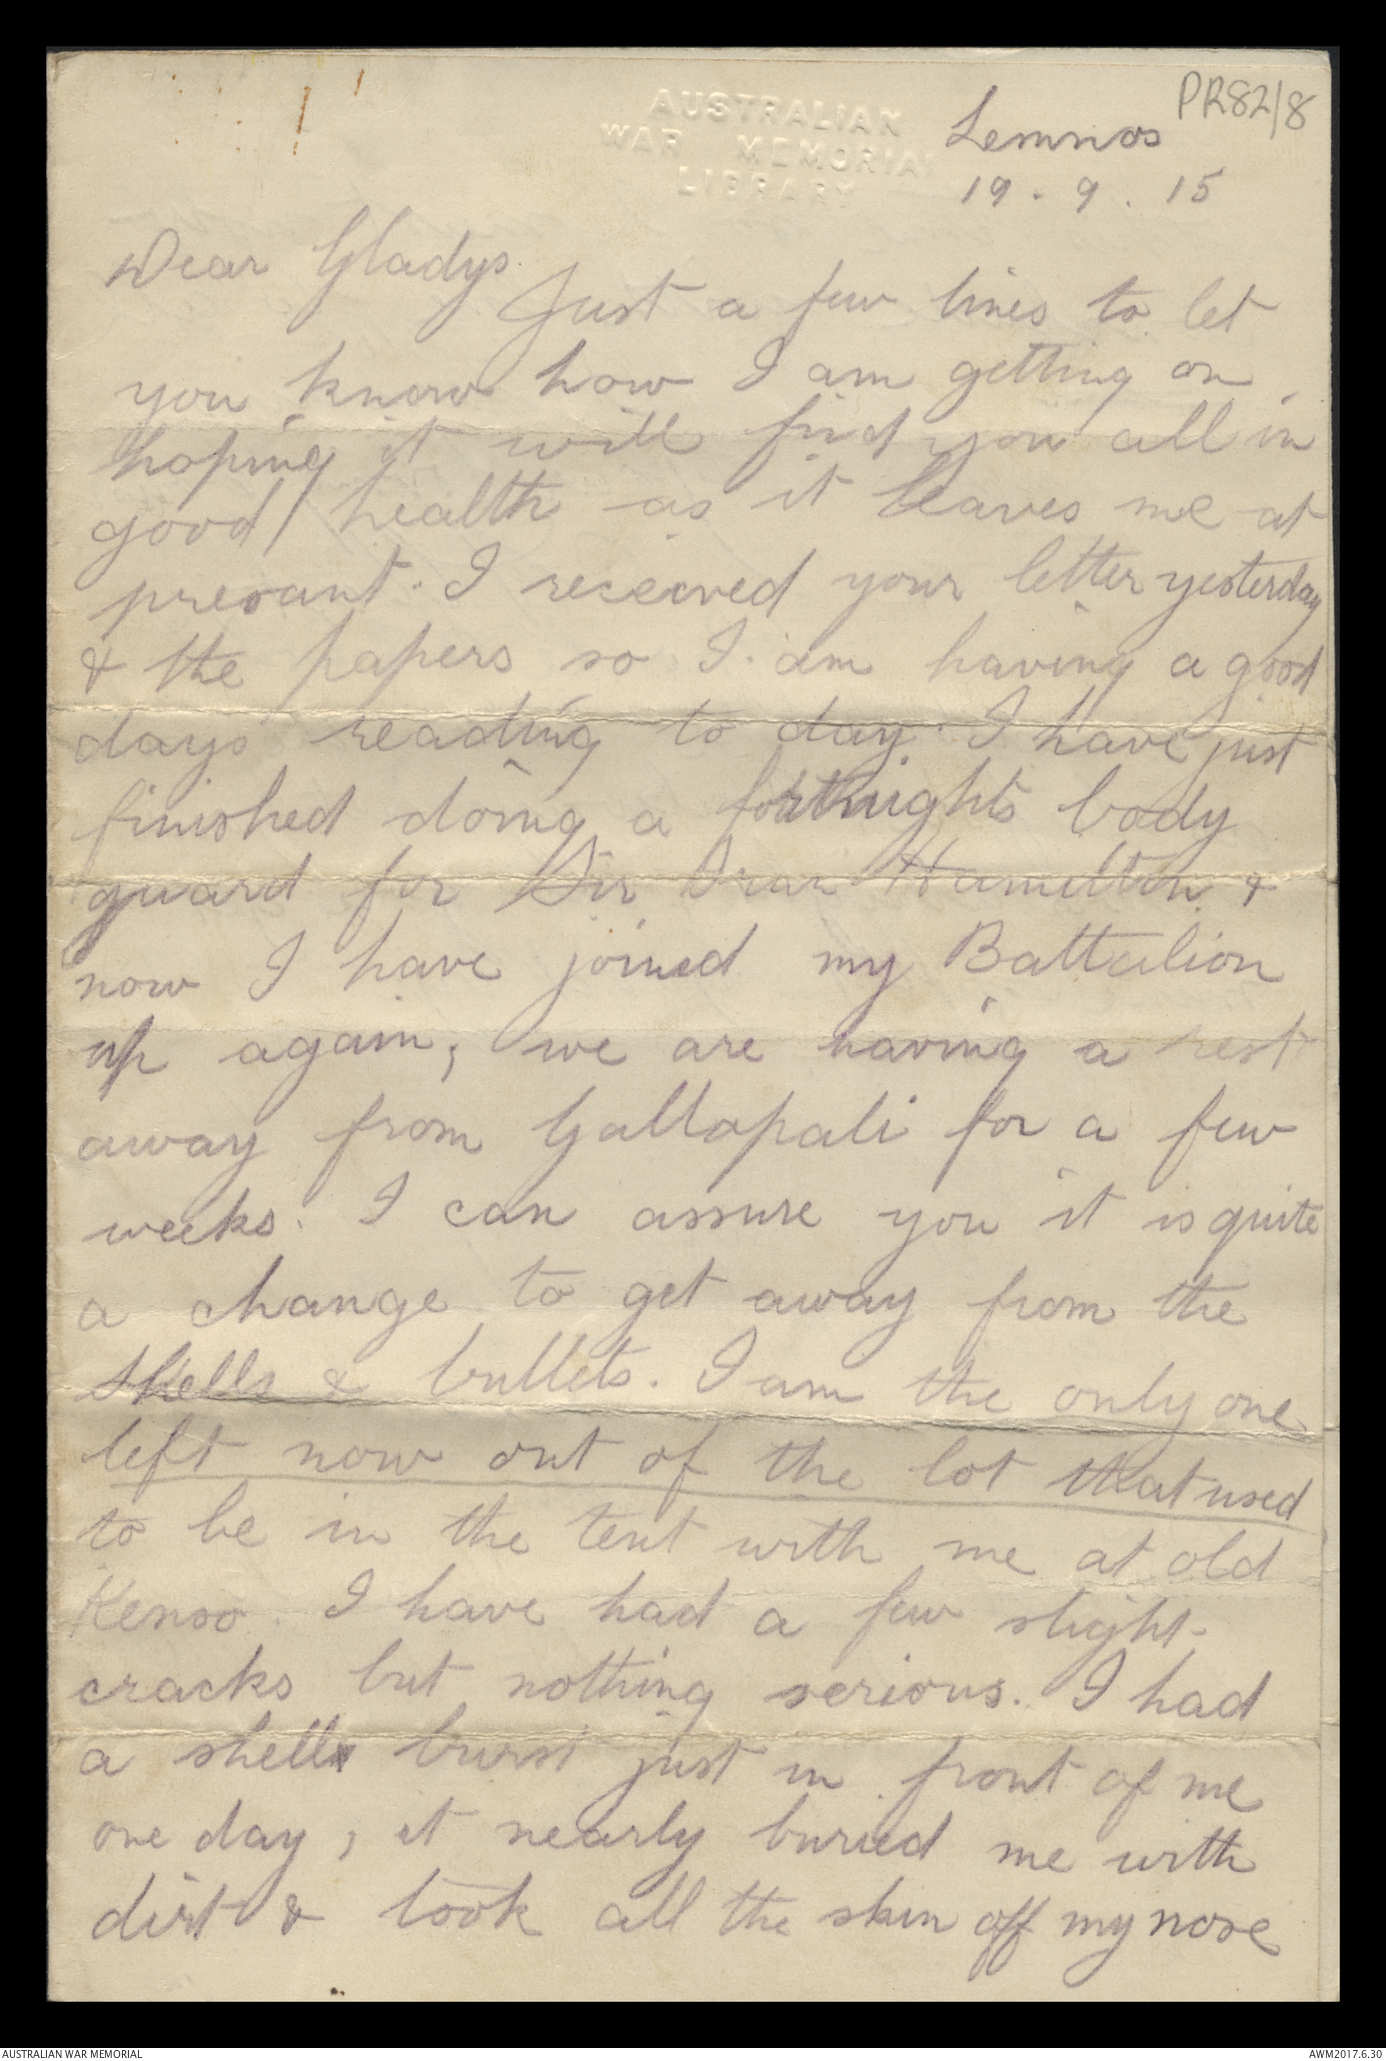 PR82/8
AUSTRALIAN
WAR MEMORIAL
LIBRARY
Lemnos
19 . 9 . 15
Dear Gladys.
Just a few lines to let
you know how I am getting on,
hoping it will find you all in
good health as it leaves me at
presant. I received your letter yesterday
& the papers so I am having a good
days reading to day. I have just
finished doing a fortnights body
guard for Sir Iran Hamilton &
now I have joined my Battalion
up again, we are having a rest
away from Gallapali for a few
weeks. I can assure you it is quite
a change to get away from the
shells & bullets. I am the only one
left now out of the lot that used
to be in the tent with me at old
Kenso. I have had a few slight
cracks but nothing serious. I had
a shell burst just in front of me
one day, it nearly buried me with
dirt & took all the skin off my nose
AUSTRALIAN WAR MEMORIAL
AWM2017.6.30